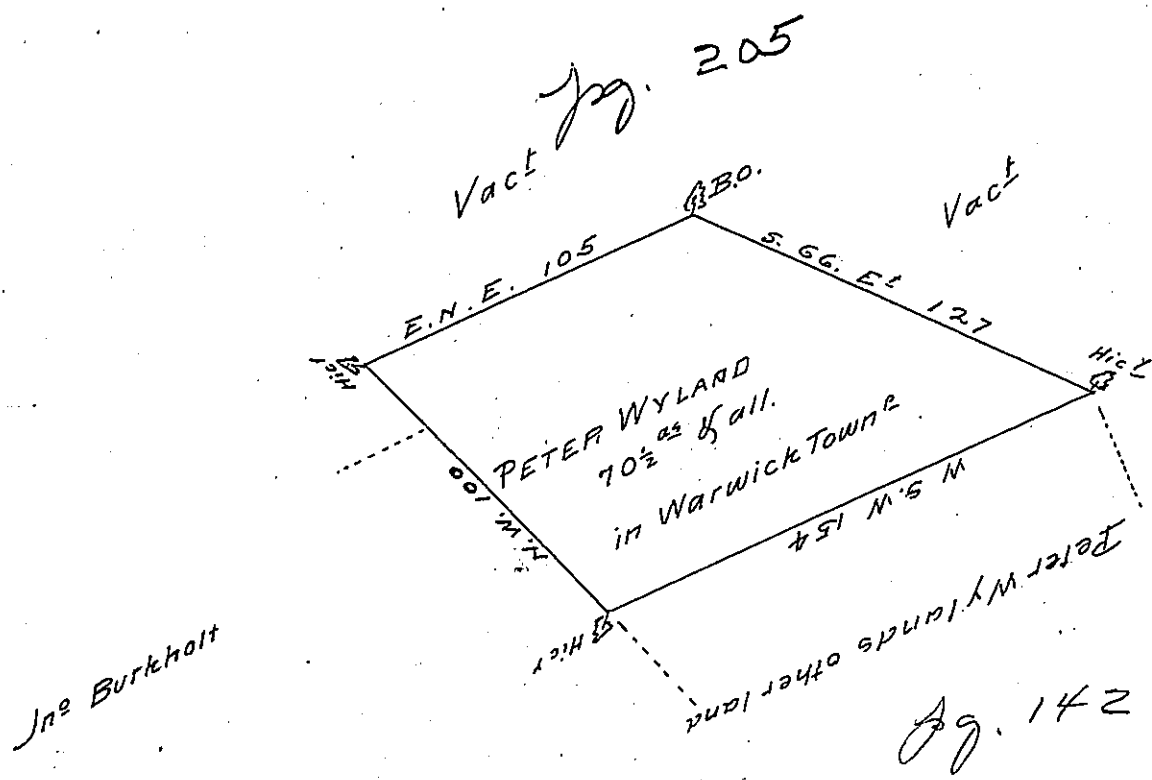 pg. 205
Vacᵗ
B.O.
Vacᵗ
E.N.E. 105
S. 66. Eᵗ 127
Hicʸ
Hicʸ
PETER WYLAND
70½ aˢ & all.
in Warwick Townᵖ
N.W. 100
W S.W 154
Hicʸ
Peter Wylands other land
Jnº Burkholt
pg. 142